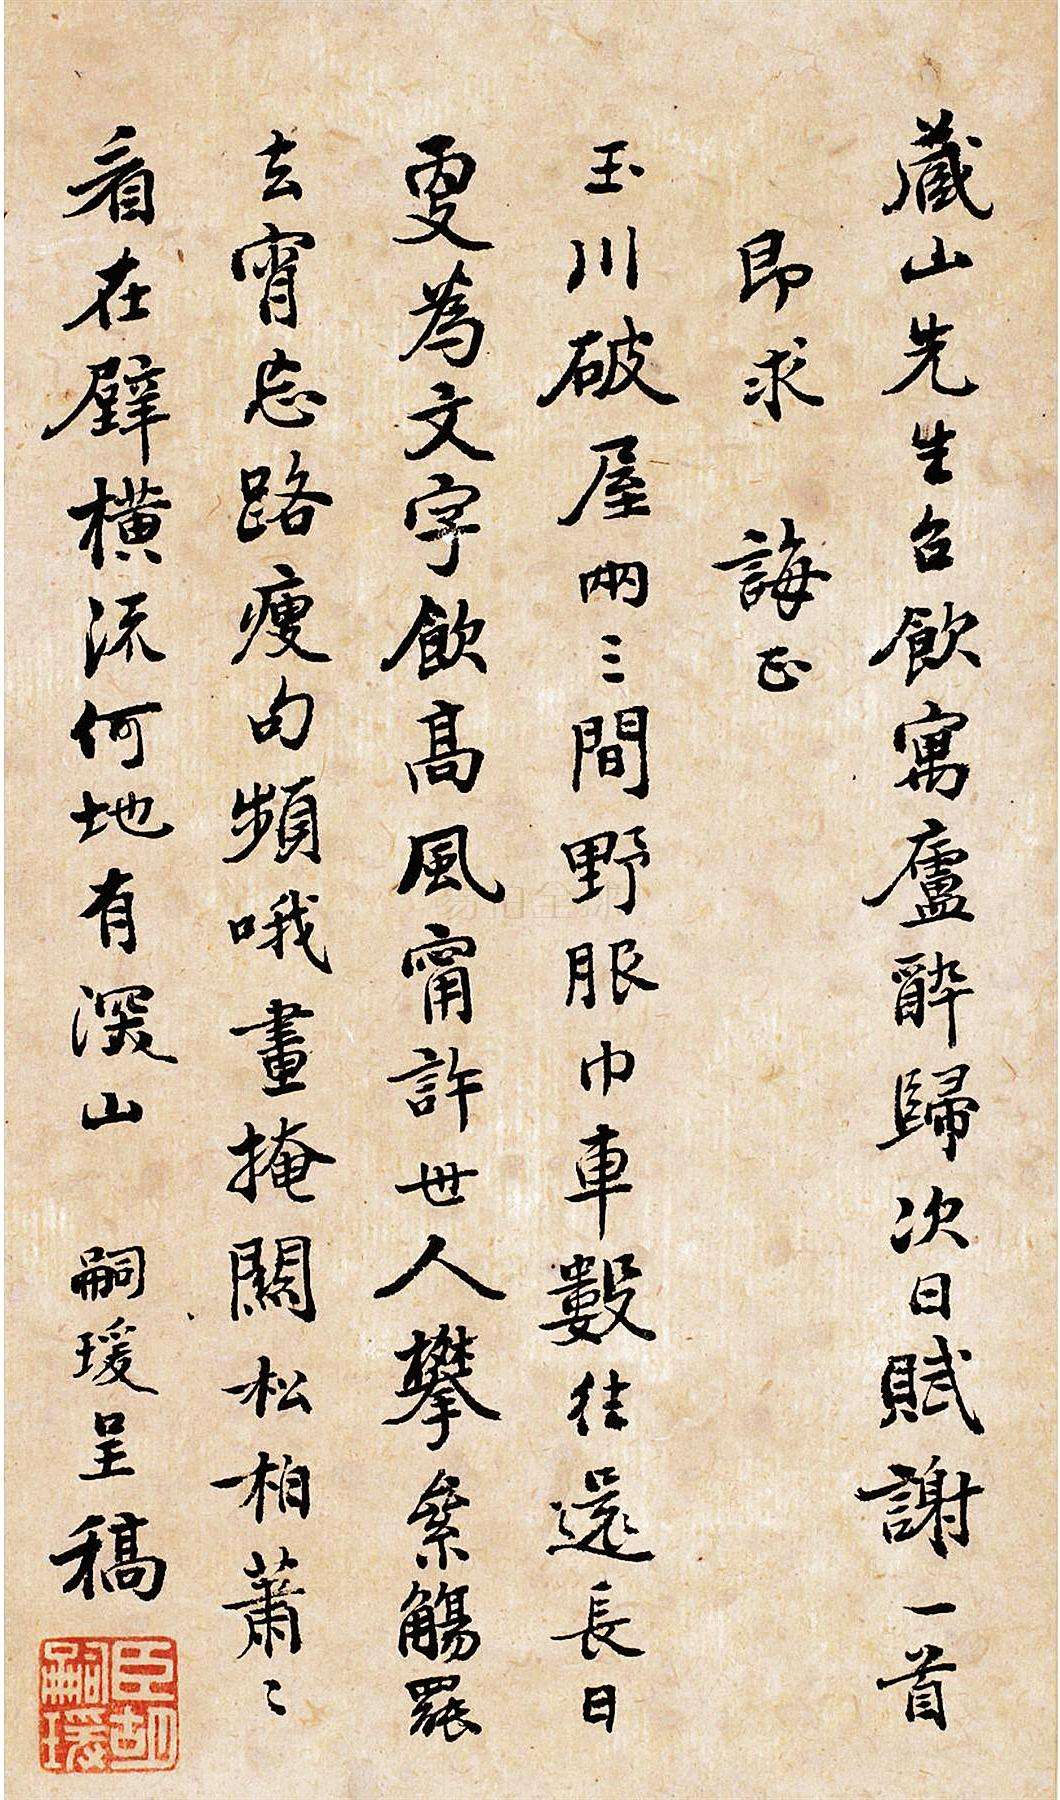 藏山先生召飲寓廬醉歸次日賦謝一首
即求　誨正
玉川破屋兩三間野服巾車數往還長日
更為文字飲高風甯許世人攀叅觴罷
去宵忘路瘦句頻哦晝掩關松柏蕭〻
看在壁橫流何地有深山　嗣瑗呈稿
臣胡嗣瑗